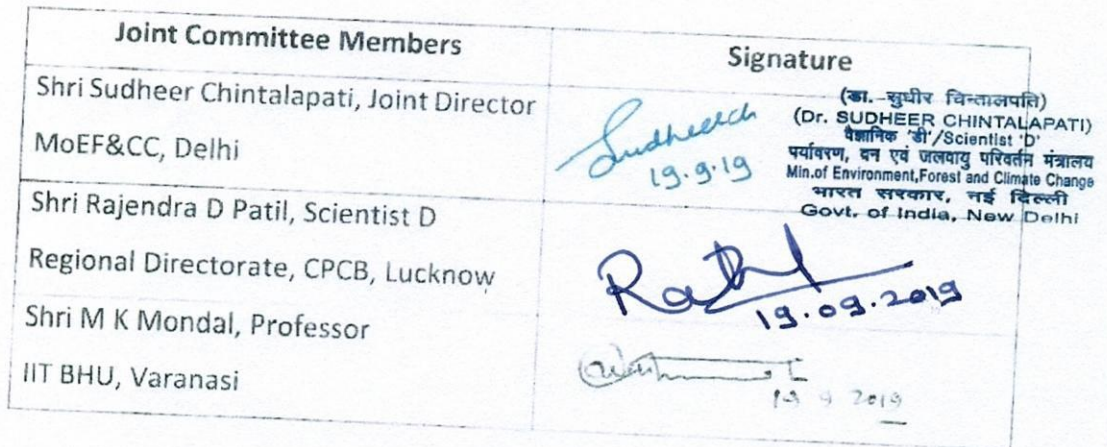 Joint Committee Members
Signature
Shri Sudheer Chintalapati, Joint Director
MoEF&CC, Delhi
Sudheerch
19.9.19
(डा. सुधीर चिन्तालपति)
(Dr. SUDHEER CHINTALAPATI)
वैज्ञानिक 'डी'/Scientist 'D'
पर्यावरण, वन एवं जलवायु परिवर्तन मंत्रालय
Min.of Environment,Forest and Climate Change
भारत सरकार, नई दिल्ली
Govt. of India, New Delhi
Shri Rajendra D Patil, Scientist D
Regional Directorate, CPCB, Lucknow
19.09.2019
Shri M K Mondal, Professor
IIT BHU, Varanasi
19 9 2019